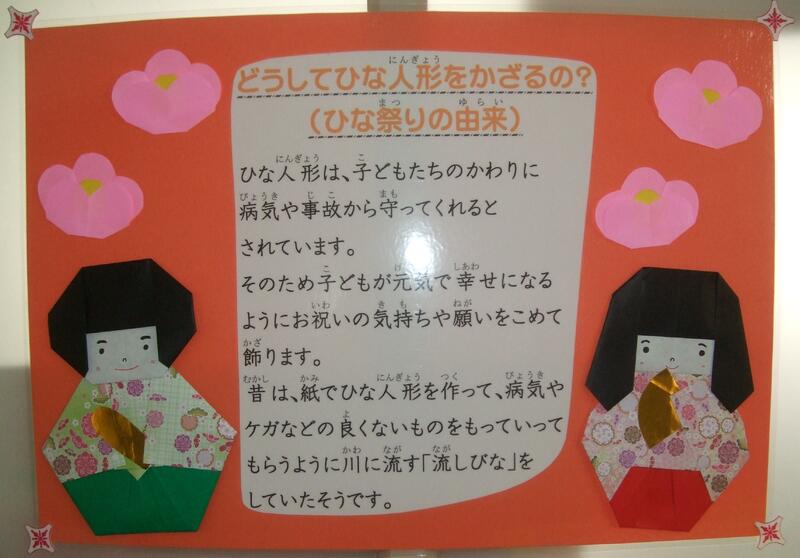 どうしてひな人形をかざるの?
(ひな祭りの由来)
ひな人形は、子どもたちのかわりに
病気や事故から守ってくれると
されています。
そのため子どもが元気で幸せになる
ようにお祝いの気持ちや願いをこめて
飾ります。
昔は、紙でひな人形を作って、病気や
ケガなどの良くないものをもっていって
もらうように川に流す「流しびな」を
していたそうです。